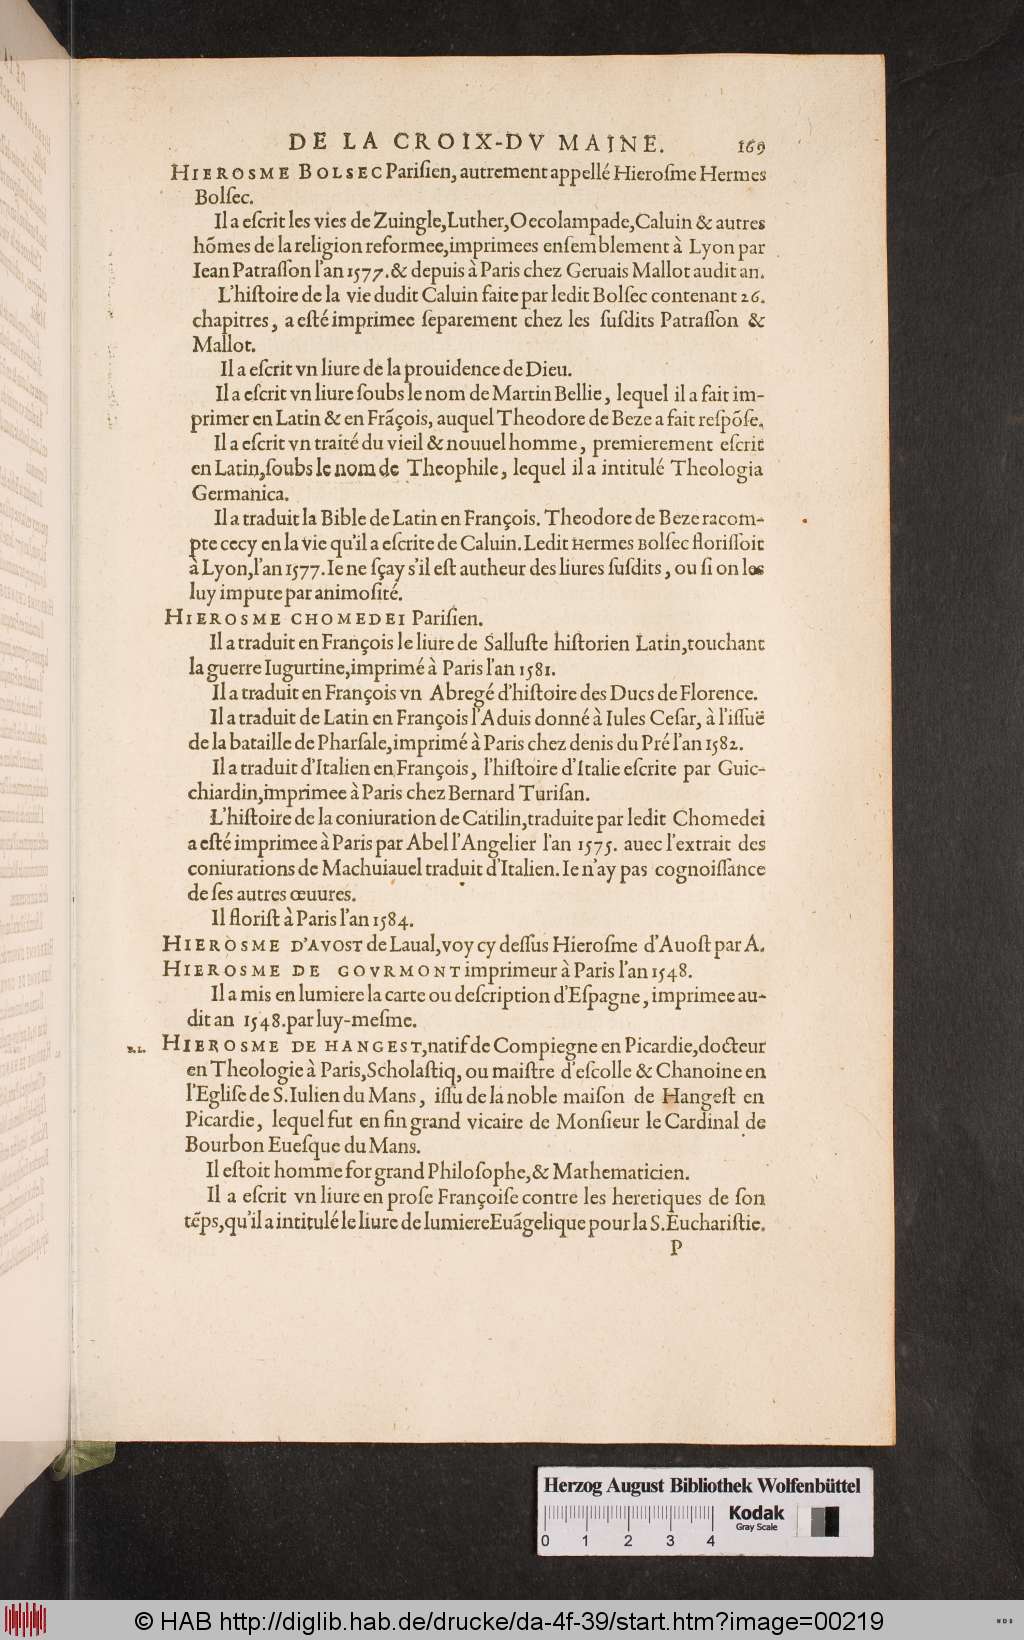 DE LA CROIX-DV MAINE. 169
HIEROSME BOLSEC Pariſien, autrement appellé Hieroſme Hermes
Bolſec.
Il a eſcrit les vies de Zuingle, Luther, Oecolampade, Caluin & autres
hõmes de la religion reformee, imprimees enſemblement à Lyon par
Iean Patraſſon l'an 1577. & depuis à Paris chez Geruais Mallot audit an.
L'hiſtoire de la vie dudit Caluin faite par ledit Bolſec contenant 26.
chapitres, a eſté imprimee ſeparement chez les ſuſdits Patraſſon &
Mallot.
Il a eſcrit vn liure de la prouidence de Dieu.
Il a eſcrit vn liure ſoubs le nom de Martin Bellie, lequel il a fait im-
primer en Latin & en Frãçois, auquel Theodore de Beze a fait reſpõſe.
Il a eſcrit vn traité du vieil & nouuel homme, premierement eſcrit
en Latin, ſoubs le nom de Theophile, lequel il a intitulé Theologia
Germanica.
Il a traduit la Bible de Latin en François. Theodore de Beze racom-
pte cecy en la vie qu'il a eſcrite de Caluin. Ledit Hermes Bolſec floriſſoit
à Lyon, l'an 1577. Ie ne ſçay s'il eſt autheur des liures ſuſdits, ou ſi on les
luy impute par animoſité.
HIEROSME CHOMEDEI Pariſien.
Il a traduit en François le liure de Salluſte hiſtorien Latin, touchant
la guerre Iugurtine, imprimé à Paris l'an 1581.
Il a traduit en François vn Abregé d'hiſtoire des Ducs de Florence.
Il a traduit de Latin en François l'Aduis donné à Iules Ceſar, à l'iſſuë
de la bataille de Pharſale, imprimé à Paris chez denis du Pré l'an 1582.
Il a traduit d'Italien en François, l'hiſtoire d'Italie eſcrite par Guic-
chiardin, imprimee à Paris chez Bernard Turiſan.
L'hiſtoire de la coniuration de Catilin, traduite par ledit Chomedei
a eſté imprimee à Paris par Abel l'Angelier l'an 1575. auec l'extrait des
coniurations de Machuiauel traduit d'Italien. Ie n'ay pas cognoiſſance
de ſes autres œuures.
Il floriſt à Paris l'an 1584.
HIEROSME D'AVOST de Laual, voy cy deſſus Hieroſme d'Auoſt par A.
HIEROSME DE GOVRMONT imprimeur à Paris l'an 1548.
Il a mis en lumiere la carte ou deſcription d'Eſpagne, imprimee au-
dit an 1548. par luy-meſme.
B.L. HIEROSME DE HANGEST, natif de Compiegne en Picardie, docteur
en Theologie à Paris, Scholaſtiq, ou maiſtre d'eſcolle & Chanoine en
l'Egliſe de S. Iulien du Mans, iſſu de la noble maiſon de Hangeſt en
Picardie, lequel fut en fin grand vicaire de Monſieur le Cardinal de
Bourbon Eueſque du Mans.
Il eſtoit homme for grand Philoſophe, & Mathematicien.
Il a eſcrit vn liure en proſe Françoiſe contre les heretiques de ſon
tẽps, qu'il a intitulé le liure de lumiere Euãgelique pour la S. Euchariſtie.
P
Herzog August Bibliothek Wolfenbüttel
Kodak
Gray Scale
0 1 2 3 4
© HAB http://diglib.hab.de/drucke/da-4f-39/start.htm?image=00219